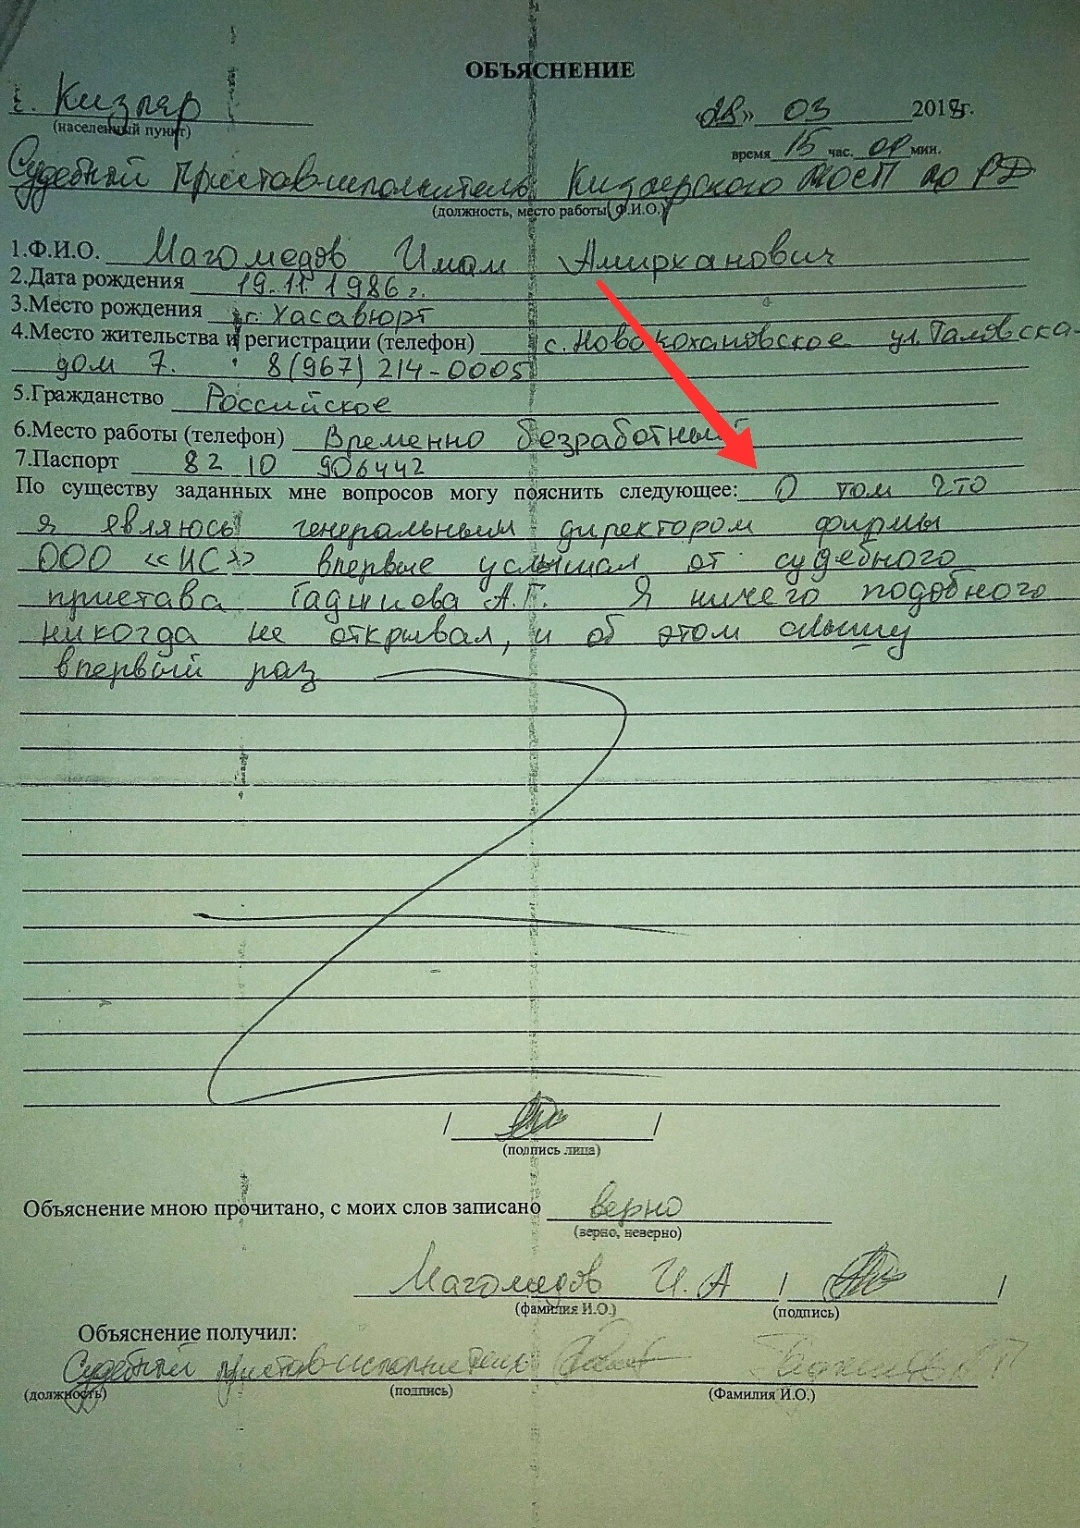 ОБЪЯСНЕНИЕ
г. Кизляр «28» 03 2018г.
(населенный пункт)
время 15 час. 00 мин.
Судебный пристав-исполнитель Кизлярского МОСП по РД
(должность, место работы, Ф.И.О.)
1.Ф.И.О. Магомедов Имам Амирханович
2.Дата рождения 19.11.1986г.
3.Место рождения г. Хасавюрт
4.Место жительства и регистрации (телефон) с. Новокохановское ул. Таловска-
дом 7. 8(967) 214-0005
5.Гражданство Российское
6.Место работы (телефон) Временно безработный
7.Паспорт 82 10 906442
По существу заданных мне вопросов могу пояснить следующее: О том что
я являюсь генеральным директором фирмы
ООО «ИС» впервые услышал от судебного
пристава Гаджиева А.Г. Я ничего подобного
никогда не открывал, и об этом слышу
впервый раз
(подпись лица)
Объяснение мною прочитано, с моих слов записано верно
(верно, неверно)
Магомедов И.А
(фамилия И.О.) (подпись)
Объяснение получил:
Судебный пристав-исполнитель
(должность) (подпись) (Фамилия И.О.)